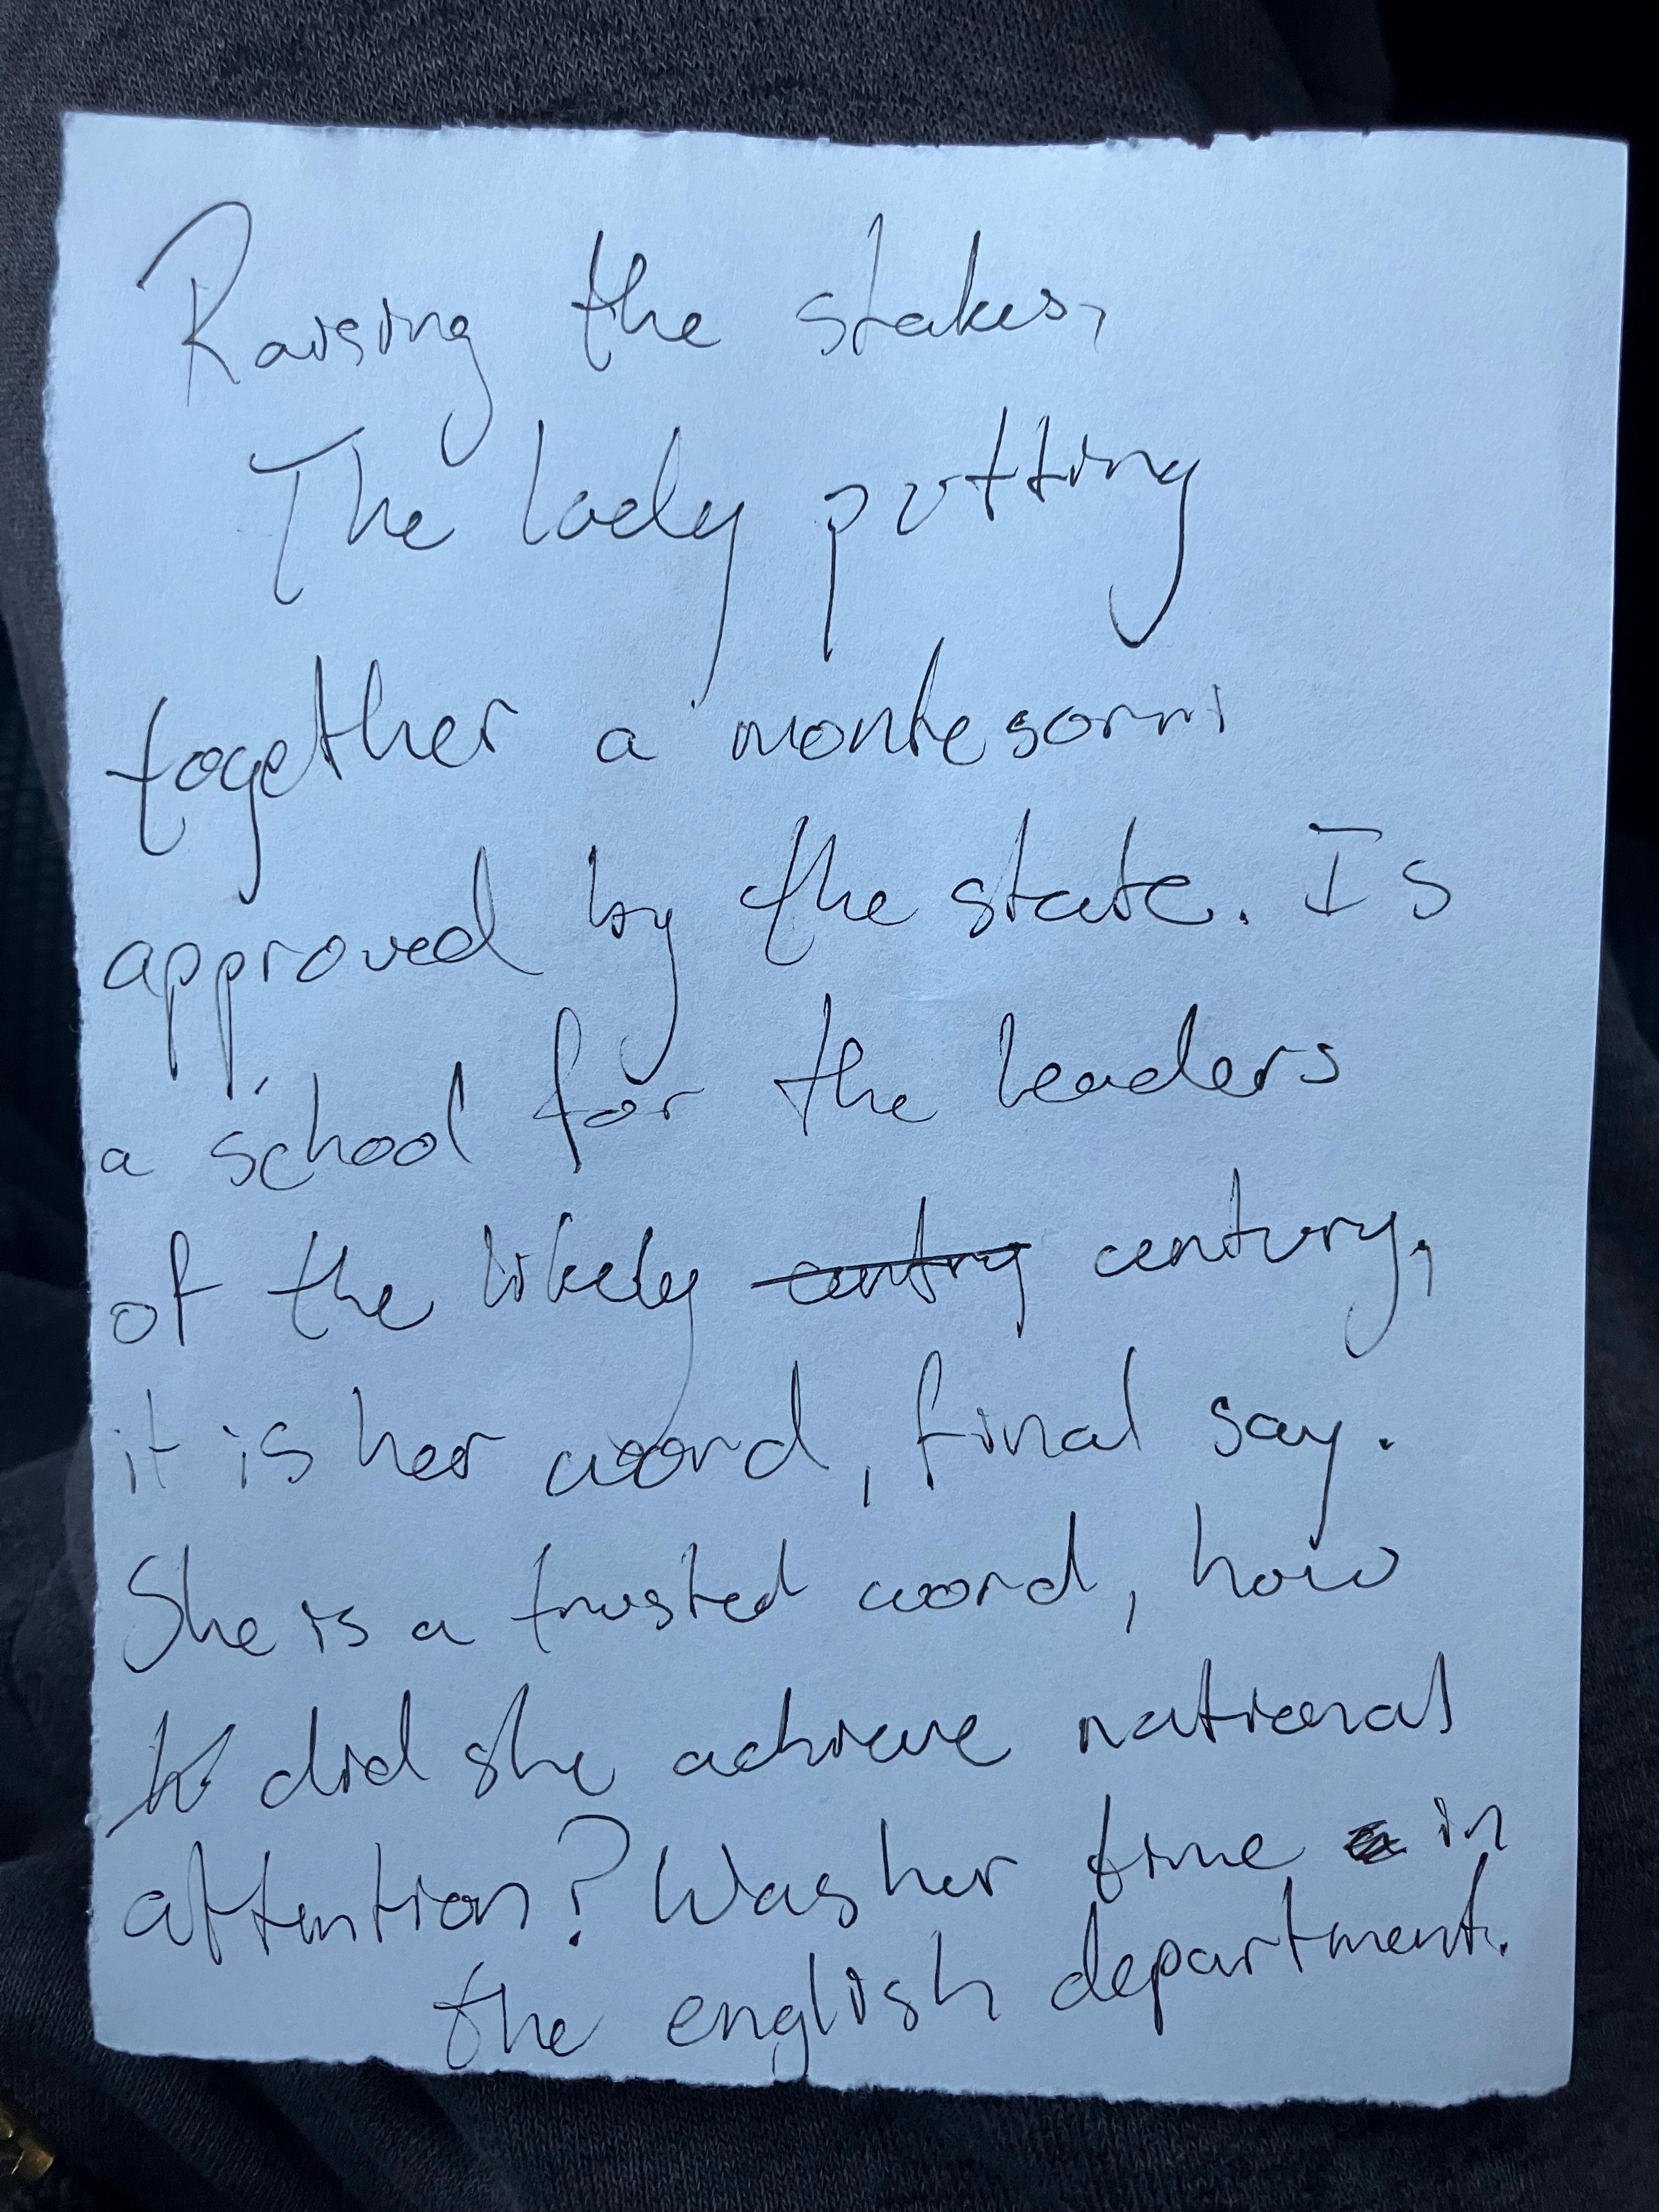 Raising the stakes,
The lady putting
together a montesorri
approved by the state. Is
a school for the leaders
of the likely century,
it is her word, final say.
She is a trusted word, how
did she achieve national
attention? Was her time in
the english department.